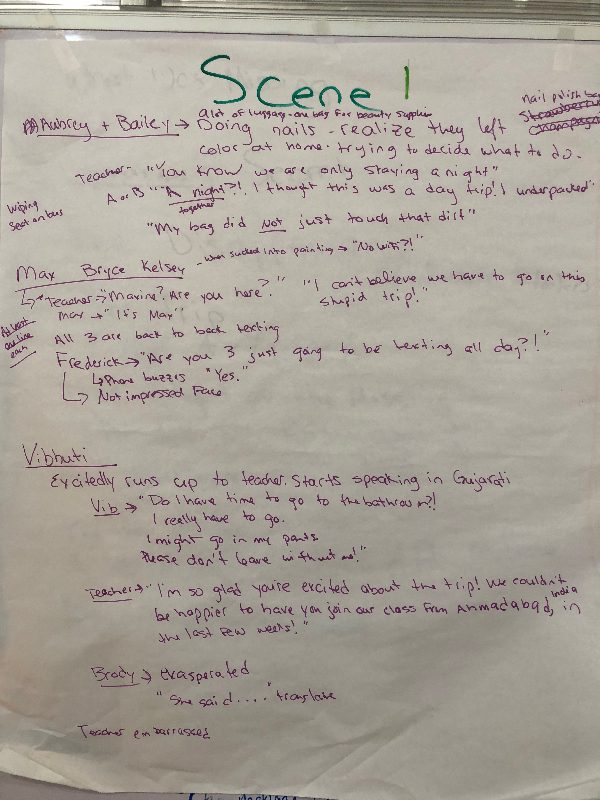 Scene 1
a lot of luggage - one bag for beauty supplies
nail polish
Aubrey + Bailey → Doing nails - realize they left
color at home. trying to decide what to do.
Teacher - "You know we are only staying a night"
A or B - "A night?! I thought this was a day trip! I underpacked"
together
Wiping
seat on bus
"My bag did Not just touch that dirt"
Max Bryce Kelsey - when sucked into painting → "No wifi?!"
↳ Teacher → "Maxine? Are you here?" "I can't believe we have to go on this
Max → "It's Max"! stupid trip!"
At least
one line
each
All 3 are back to back texting
Frederick → "Are you 3 just going to be texting all day?!"
↳ Phone buzzes "Yes."
↳ Not impressed Face
Vibhuti
Excitedly runs up to teacher. Starts speaking in Gujarati
Vib → "Do I have time to go to the bathroom?!
I really have to go.
I might go in my pants
Please don't leave without me!"
Teacher → "I'm so glad you're excited about the trip! We couldn't
be happier to have you join our class from Ahmadabad, India in
the last few weeks!"
Brody → exasperated
"She said...." translate
Teacher embarrassed